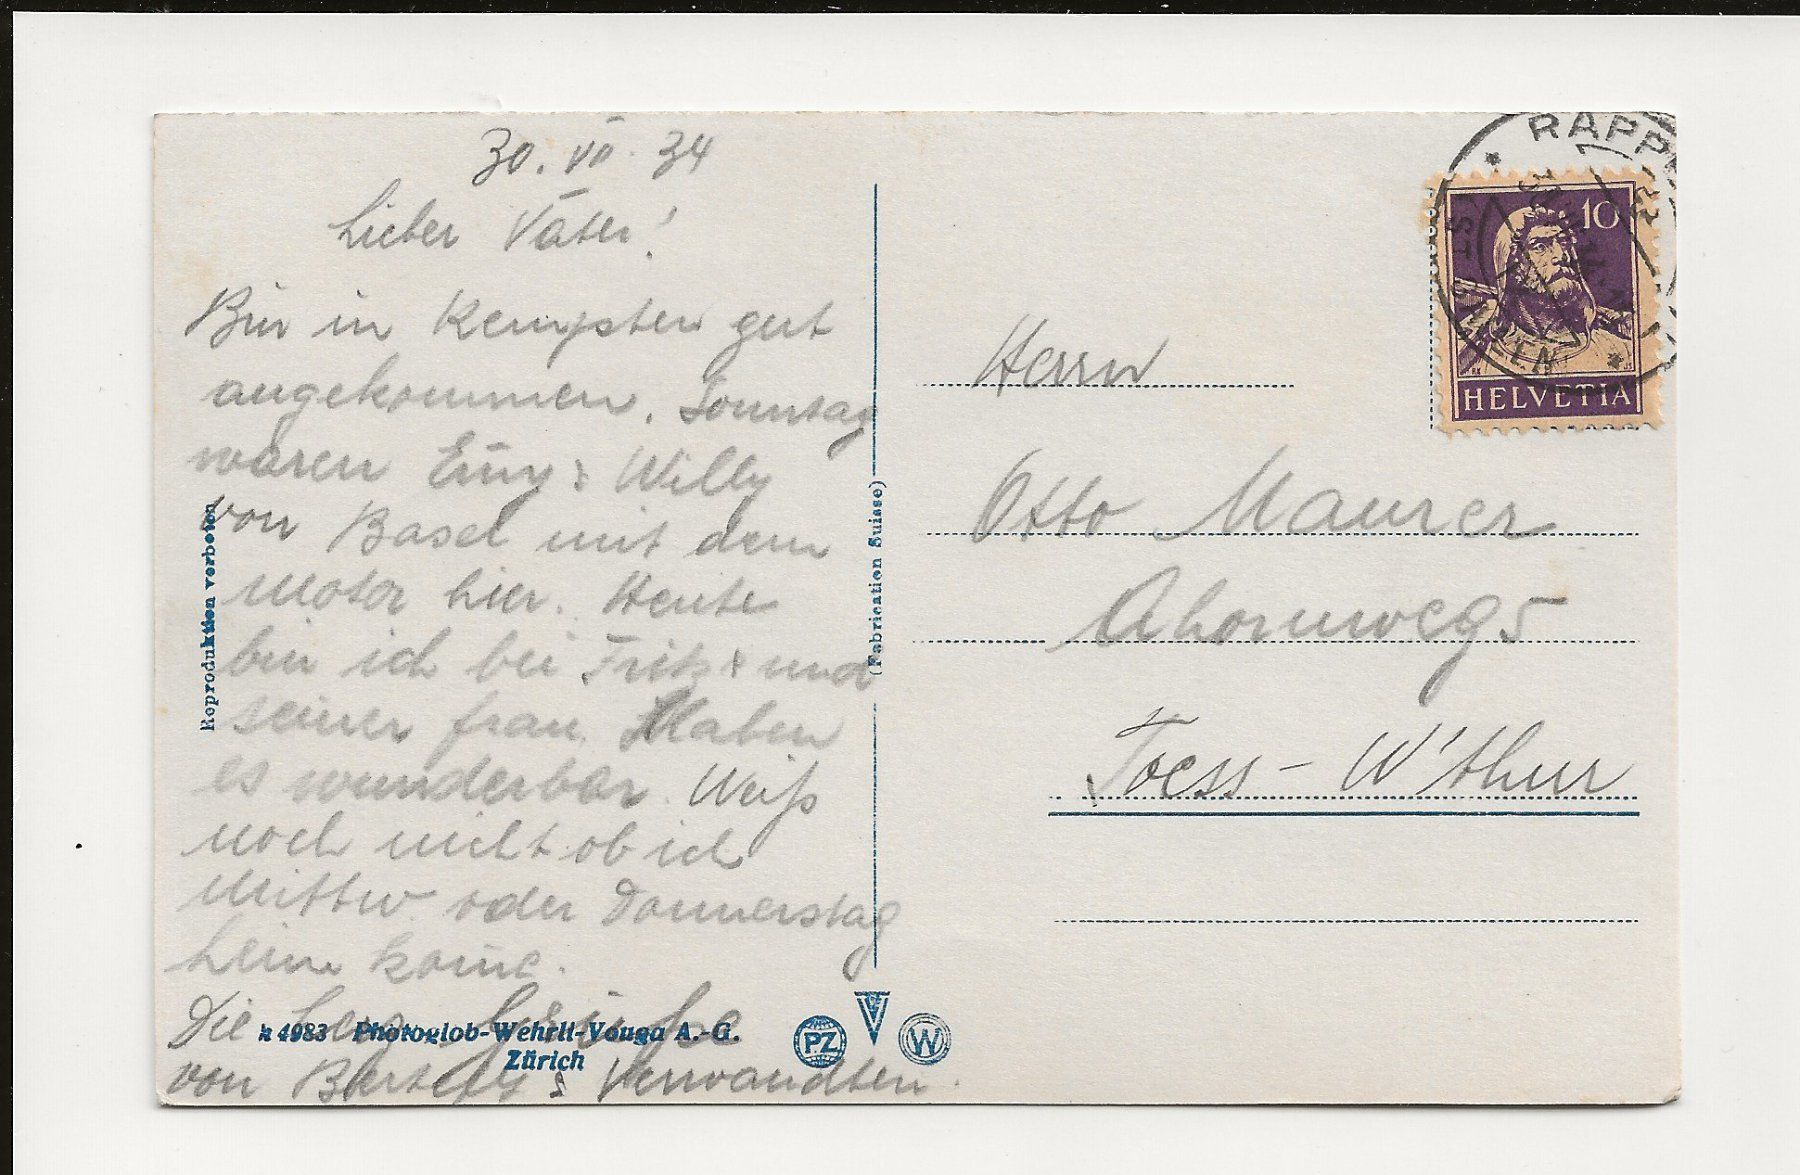 30. VII. 34
Lieber Vater!
Bin in Kempten gut
angekommen. Sonntag
waren Emy & Willy
von Basel mit dem
Motor hier. Heute
bin ich bei Fritz & und
seiner Frau. Haben
es wunderbar. Weiß
noch nicht ob ich
Mittw. oder Donnerstag
heim kom̄e.
Die herz. Grüsse
von & Verwandten.
Reproduktion verboten
4983 Photoglob-Wehrli-Vouga A.-G.
Zürich
PZ
W
(Fabrication Suisse)
RAPP
ST. GALLEN
10
HELVETIA
Herrn
Otto Maurer
Ahornweg 5
Toess - W'thur